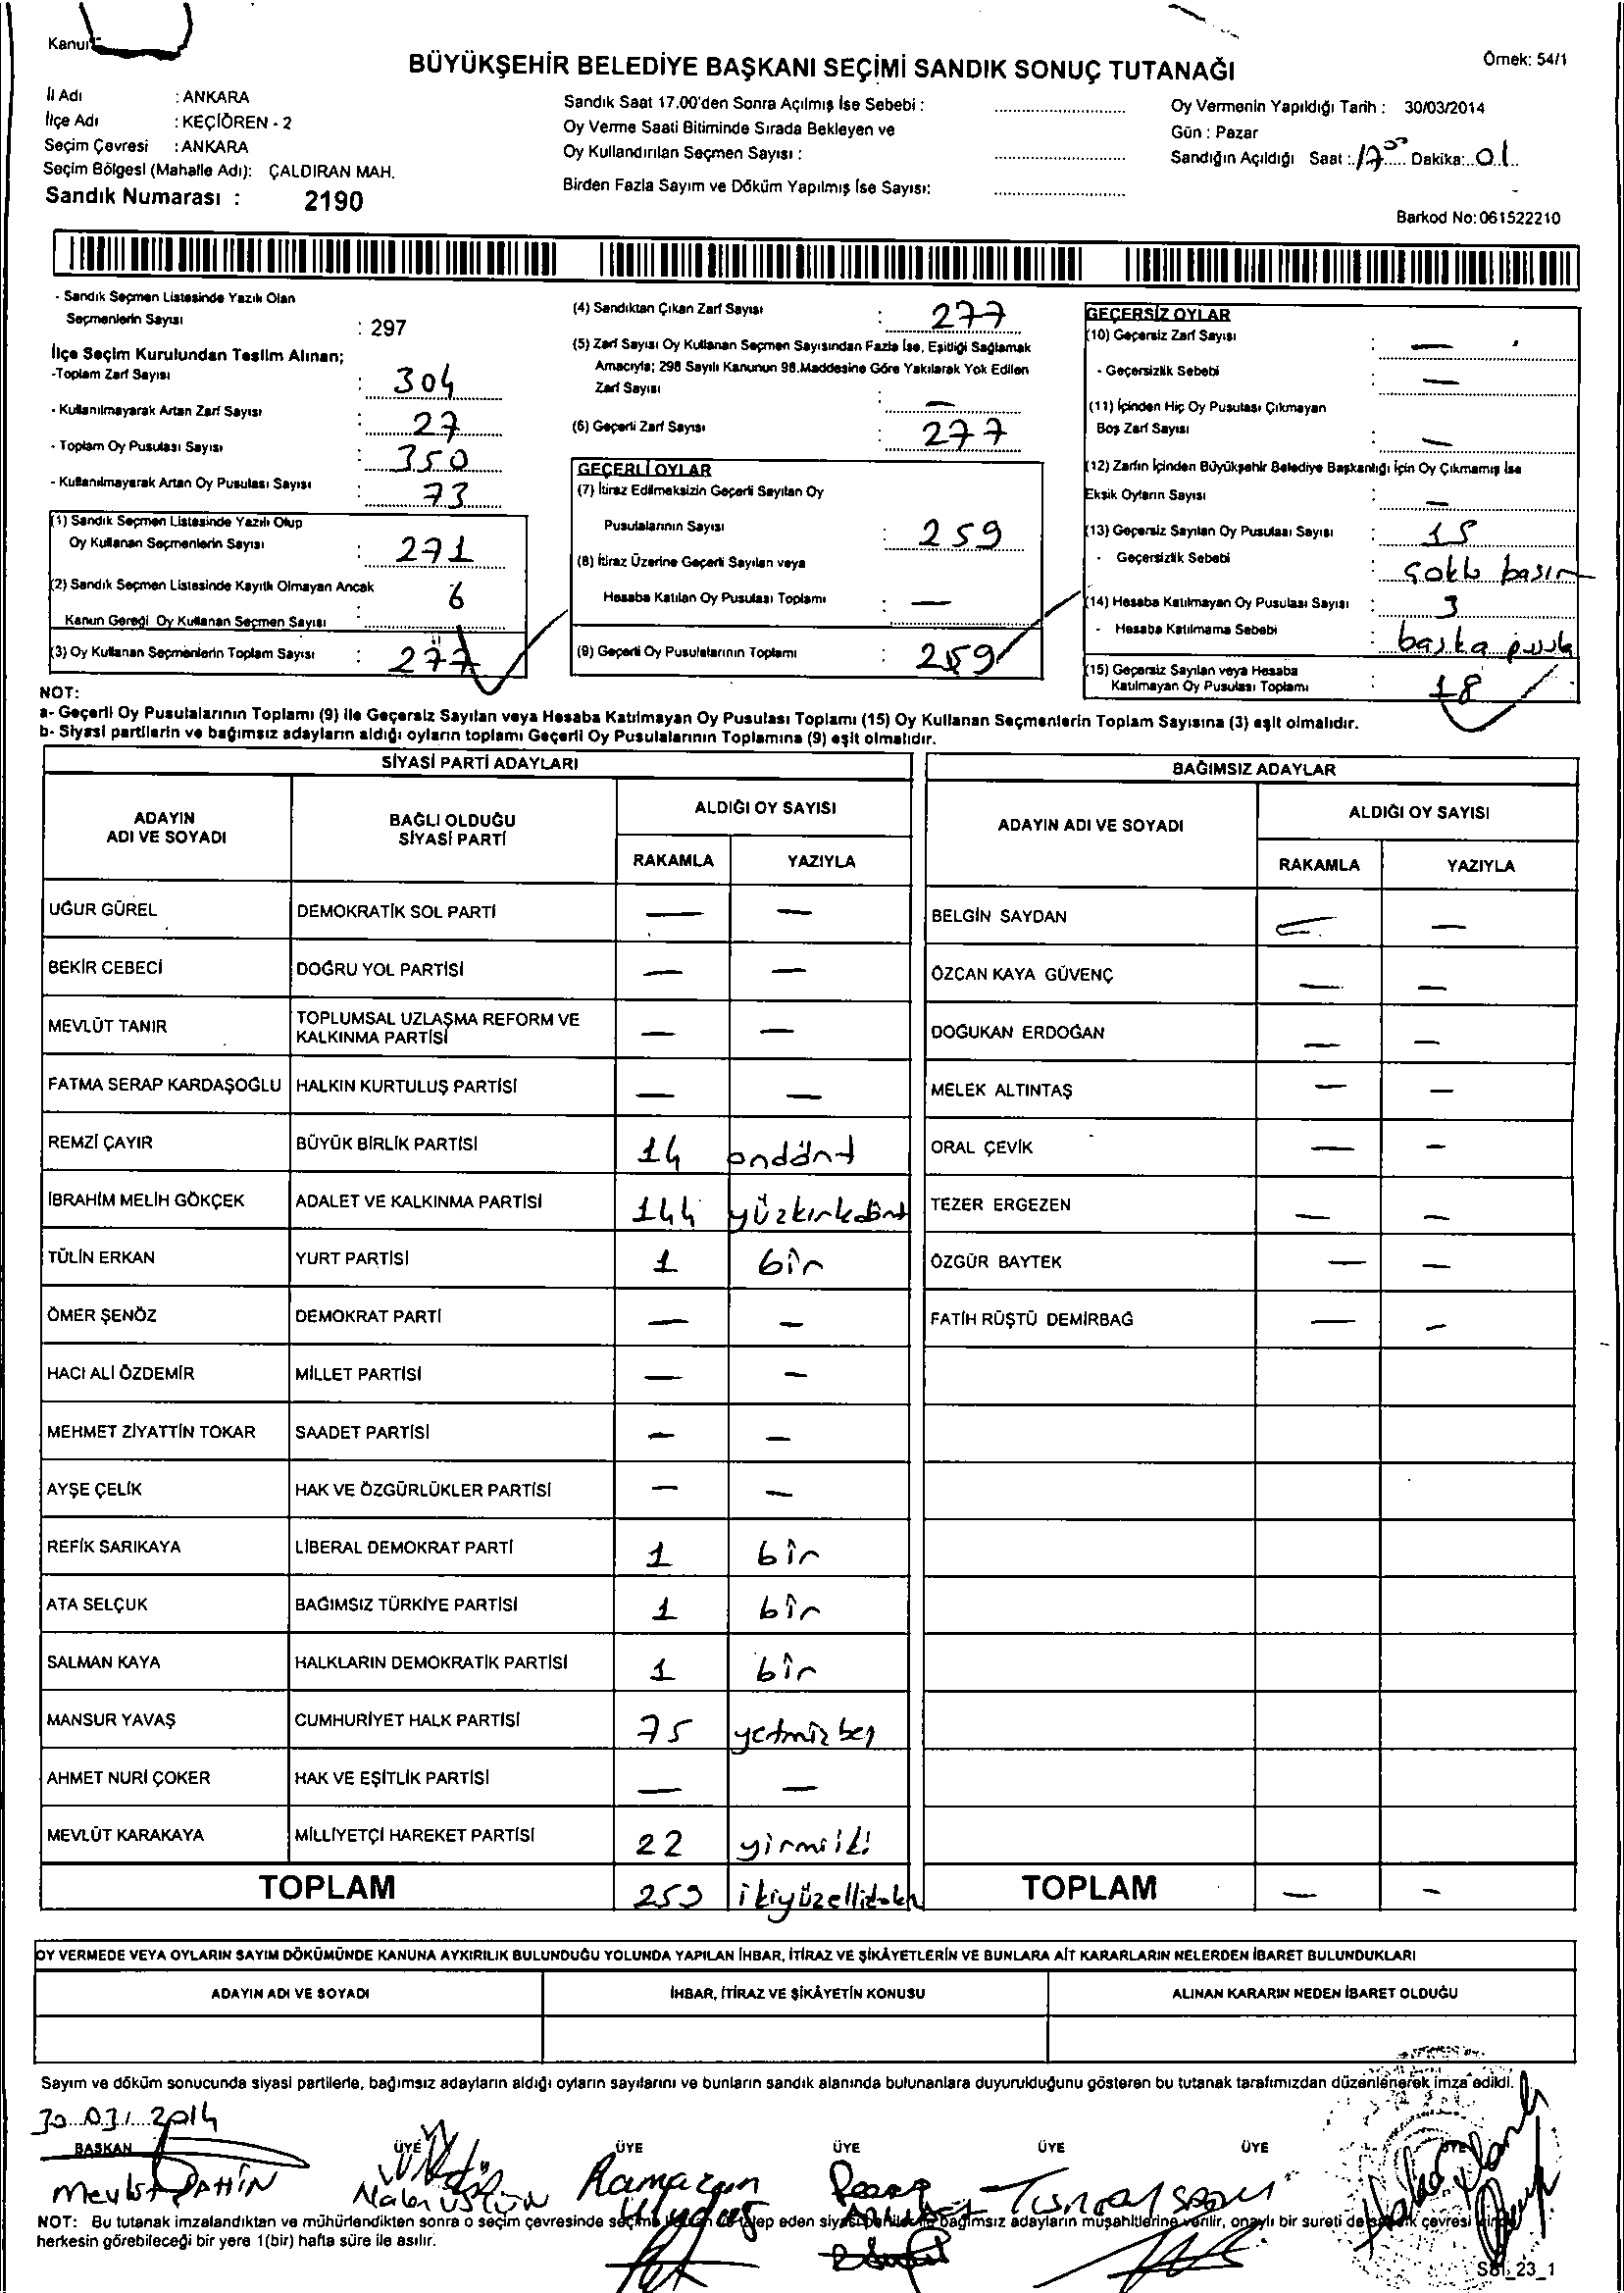 Kanun
BÜYÜKŞEHİR BELEDİYE BAŞKANI SEÇİMİ SANDIK SONUÇ TUTANAĞI
Örnek: 54/1
İl Adı : ANKARA
İlçe Adı : KEÇİÖREN - 2
Seçim Çevresi : ANKARA
Seçim Bölgesi (Mahalle Adı): ÇALDIRAN MAH.
Sandık Numarası : 2190
Sandık Saat 17.00'den Sonra Açılmış İse Sebebi :
Oy Verme Saati Bitiminde Sırada Bekleyen ve
Oy Kullandırılan Seçmen Sayısı :
Birden Fazla Sayım ve Döküm Yapılmış İse Sayısı:
Oy Vermenin Yapıldığı Tarih : 30/03/2014
Gün : Pazar
Sandığın Açıldığı Saat : 17 00 Dakika: 01
Barkod No: 061522210
- Sandık Seçmen Listesinde Yazılı Olan
Seçmenlerin Sayısı : 297
İlçe Seçim Kurulundan Teslim Alınan;
-Toplam Zarf Sayısı : 304
- Kullanılmayarak Artan Zarf Sayısı : 27
- Toplam Oy Pusulası Sayısı : 350
- Kullanılmayarak Artan Oy Pusulası Sayısı : 73
(1) Sandık Seçmen Listesinde Yazılı Olup
Oy Kullanan Seçmenlerin Sayısı : 271
(2) Sandık Seçmen Listesinde Kayıtlı Olmayan Ancak
Kanun Gereği Oy Kullanan Seçmen Sayısı : 6
(3) Oy Kullanan Seçmenlerin Toplam Sayısı : 277
(4) Sandıktan Çıkan Zarf Sayısı : 277
(5) Zarf Sayısı Oy Kullanan Seçmen Sayısından Fazla İse, Eşitliği Sağlamak
Amacıyla; 298 Sayılı Kanunun 98.Maddesine Göre Yakılarak Yok Edilen
Zarf Sayısı : —
(6) Geçerli Zarf Sayısı : 277
GEÇERLİ OYLAR
(7) İtiraz Edilmeksizin Geçerli Sayılan Oy
Pusulalarının Sayısı : 259
(8) İtiraz Üzerine Geçerli Sayılan veya
Hesaba Katılan Oy Pusulası Toplamı : —
(9) Geçerli Oy Pusulalarının Toplamı : 259
GEÇERSİZ OYLAR
(10) Geçersiz Zarf Sayısı : —
- Geçersizlik Sebebi : —
(11) İçinden Hiç Oy Pusulası Çıkmayan
Boş Zarf Sayısı : —
(12) Zarfın İçinden Büyükşehir Belediye Başkanlığı İçin Oy Çıkmamış İse
Eksik Oyların Sayısı : —
(13) Geçersiz Sayılan Oy Pusulası Sayısı : 15
- Geçersizlik Sebebi : çoklu basım
(14) Hesaba Katılmayan Oy Pusulası Sayısı : 3
- Hesaba Katılmama Sebebi : başka pusula
(15) Geçersiz Sayılan veya Hesaba
Katılmayan Oy Pusulası Toplamı : 18
NOT:
a- Geçerli Oy Pusulalarının Toplamı (9) ile Geçersiz Sayılan veya Hesaba Katılmayan Oy Pusulası Toplamı (15) Oy Kullanan Seçmenlerin Toplam Sayısına (3) eşit olmalıdır.
b- Siyasi partilerin ve bağımsız adayların aldığı oyların toplamı Geçerli Oy Pusulalarının Toplamına (9) eşit olmalıdır.
SİYASİ PARTİ ADAYLARI
ADAYIN ADI VE SOYADI BAĞLI OLDUĞU SİYASİ PARTİ ALDIĞI OY SAYISI
RAKAMLA YAZIYLA
UĞUR GÜREL DEMOKRATİK SOL PARTİ — —
BEKİR CEBECİ DOĞRU YOL PARTİSİ — —
MEVLÜT TANIR TOPLUMSAL UZLAŞMA REFORM VE KALKINMA PARTİSİ — —
FATMA SERAP KARDAŞOĞLU HALKIN KURTULUŞ PARTİSİ — —
REMZİ ÇAYIR BÜYÜK BİRLİK PARTİSİ 14 ondört
İBRAHİM MELİH GÖKÇEK ADALET VE KALKINMA PARTİSİ 144 yüzkırkdört
TÜLİN ERKAN YURT PARTİSİ 1 bir
ÖMER ŞENÖZ DEMOKRAT PARTİ — —
HACI ALİ ÖZDEMİR MİLLET PARTİSİ — —
MEHMET ZİYATTİN TOKAR SAADET PARTİSİ — —
AYŞE ÇELİK HAK VE ÖZGÜRLÜKLER PARTİSİ — —
REFİK SARIKAYA LİBERAL DEMOKRAT PARTİ 1 bir
ATA SELÇUK BAĞIMSIZ TÜRKİYE PARTİSİ 1 bir
SALMAN KAYA HALKLARIN DEMOKRATİK PARTİSİ 1 bir
MANSUR YAVAŞ CUMHURİYET HALK PARTİSİ 75 yetmizbeş
AHMET NURİ ÇOKER HAK VE EŞİTLİK PARTİSİ — —
MEVLÜT KARAKAYA MİLLİYETÇİ HAREKET PARTİSİ 22 yirmiiki
TOPLAM 259 ikiyüzellidokuz
BAĞIMSIZ ADAYLAR
ADAYIN ADI VE SOYADI ALDIĞI OY SAYISI
RAKAMLA YAZIYLA
BELGİN SAYDAN — —
ÖZCAN KAYA GÜVENÇ — —
DOĞUKAN ERDOĞAN — —
MELEK ALTINTAŞ — —
ORAL ÇEVİK — —
TEZER ERGEZEN — —
ÖZGÜR BAYTEK — —
FATİH RÜŞTÜ DEMİRBAĞ — —
TOPLAM — —
OY VERMEDE VEYA OYLARIN SAYIM DÖKÜMÜNDE KANUNA AYKIRILIK BULUNDUĞU YOLUNDA YAPILAN İHBAR, İTİRAZ VE ŞİKÂYETLERİN VE BUNLARA AİT KARARLARIN NELERDEN İBARET BULUNDUKLARI
ADAYIN ADI VE SOYADI İHBAR, İTİRAZ VE ŞİKÂYETİN KONUSU ALINAN KARARIN NEDEN İBARET OLDUĞU
Sayım ve döküm sonucunda siyasi partilerle, bağımsız adayların aldığı oyların sayılarını ve bunların sandık alanında bulunanlara duyurulduğunu gösteren bu tutanak tarafımızdan düzenlenerek imza edildi.
30.03.2014
BAŞKAN ÜYE ÜYE ÜYE ÜYE ÜYE ÜYE
Mevlüt ŞAHİN Ramazan
NOT: Bu tutanak imzalandıktan ve mühürlendikten sonra o seçim çevresinde seçime talep eden siyasi bağımsız adayların müşahitlerine verilir, onaylı bir sureti de sandık çevresi
herkesin görebileceği bir yere 1(bir) hafta süre ile asılır.
23_1